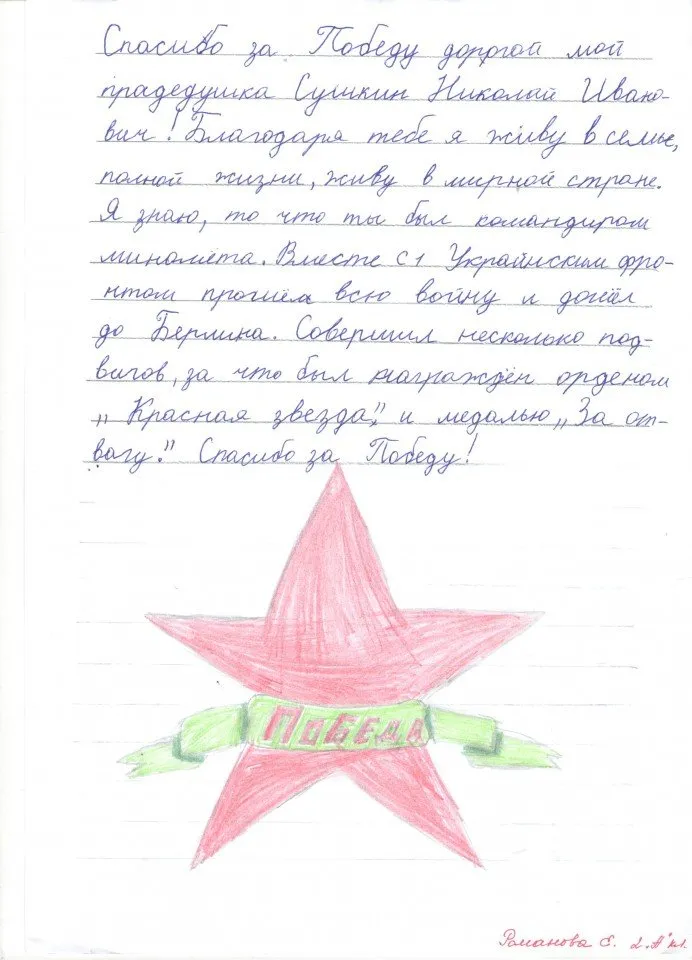 Спасибо за Победу дорогой мой
прадедушка Сушкин Николай Ивано-
вич! Благодаря тебе я живу в семье,
полной жизни, живу в мирной стране.
Я знаю, то что ты был командиром
миномёта. Вместе с 1 Украинским фро-
нтом прошёл всю войну и дошёл
до Берлина. Совершил несколько под-
вигов, за что был награждён орденом
„Красная звезда", и медалью „За от-
вагу." Спасибо за Победу!
ПОБЕДА
Романова Е. 2 "А" кл.